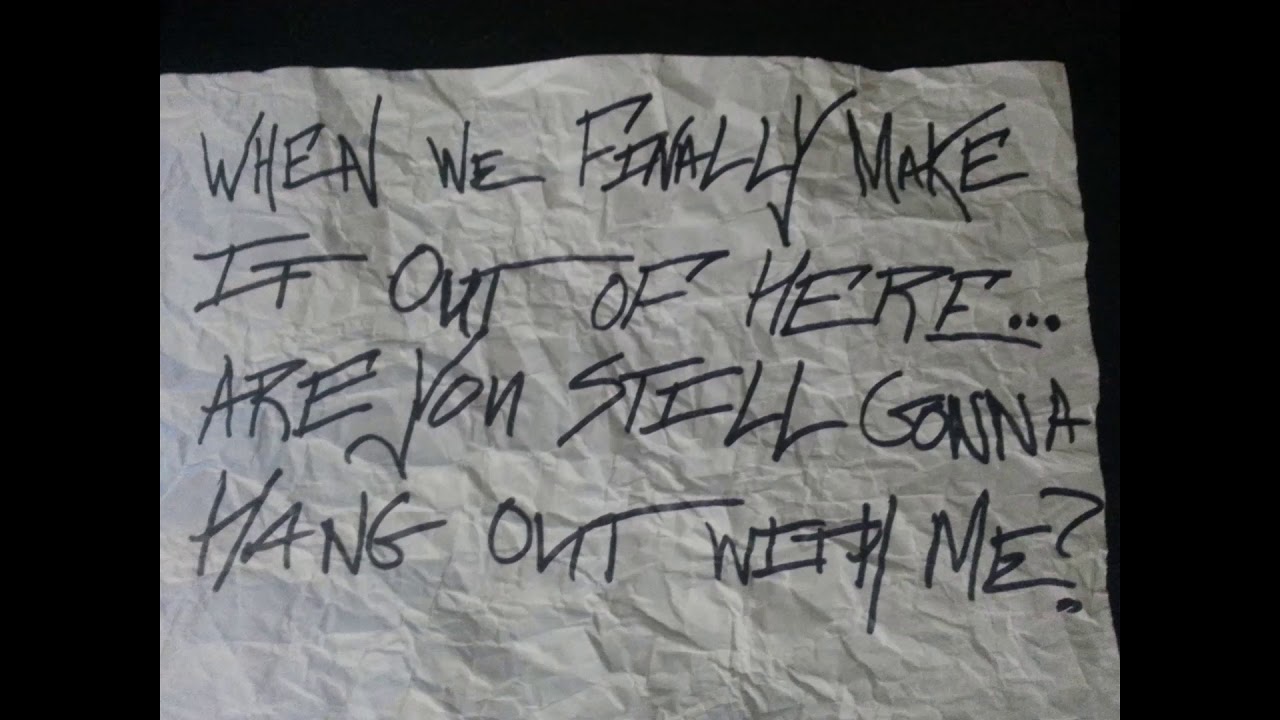 WHEN WE FINALLY MAKE
IT OUT OF HERE...
ARE YOU STILL GONNA
HANG OUT WITH ME?